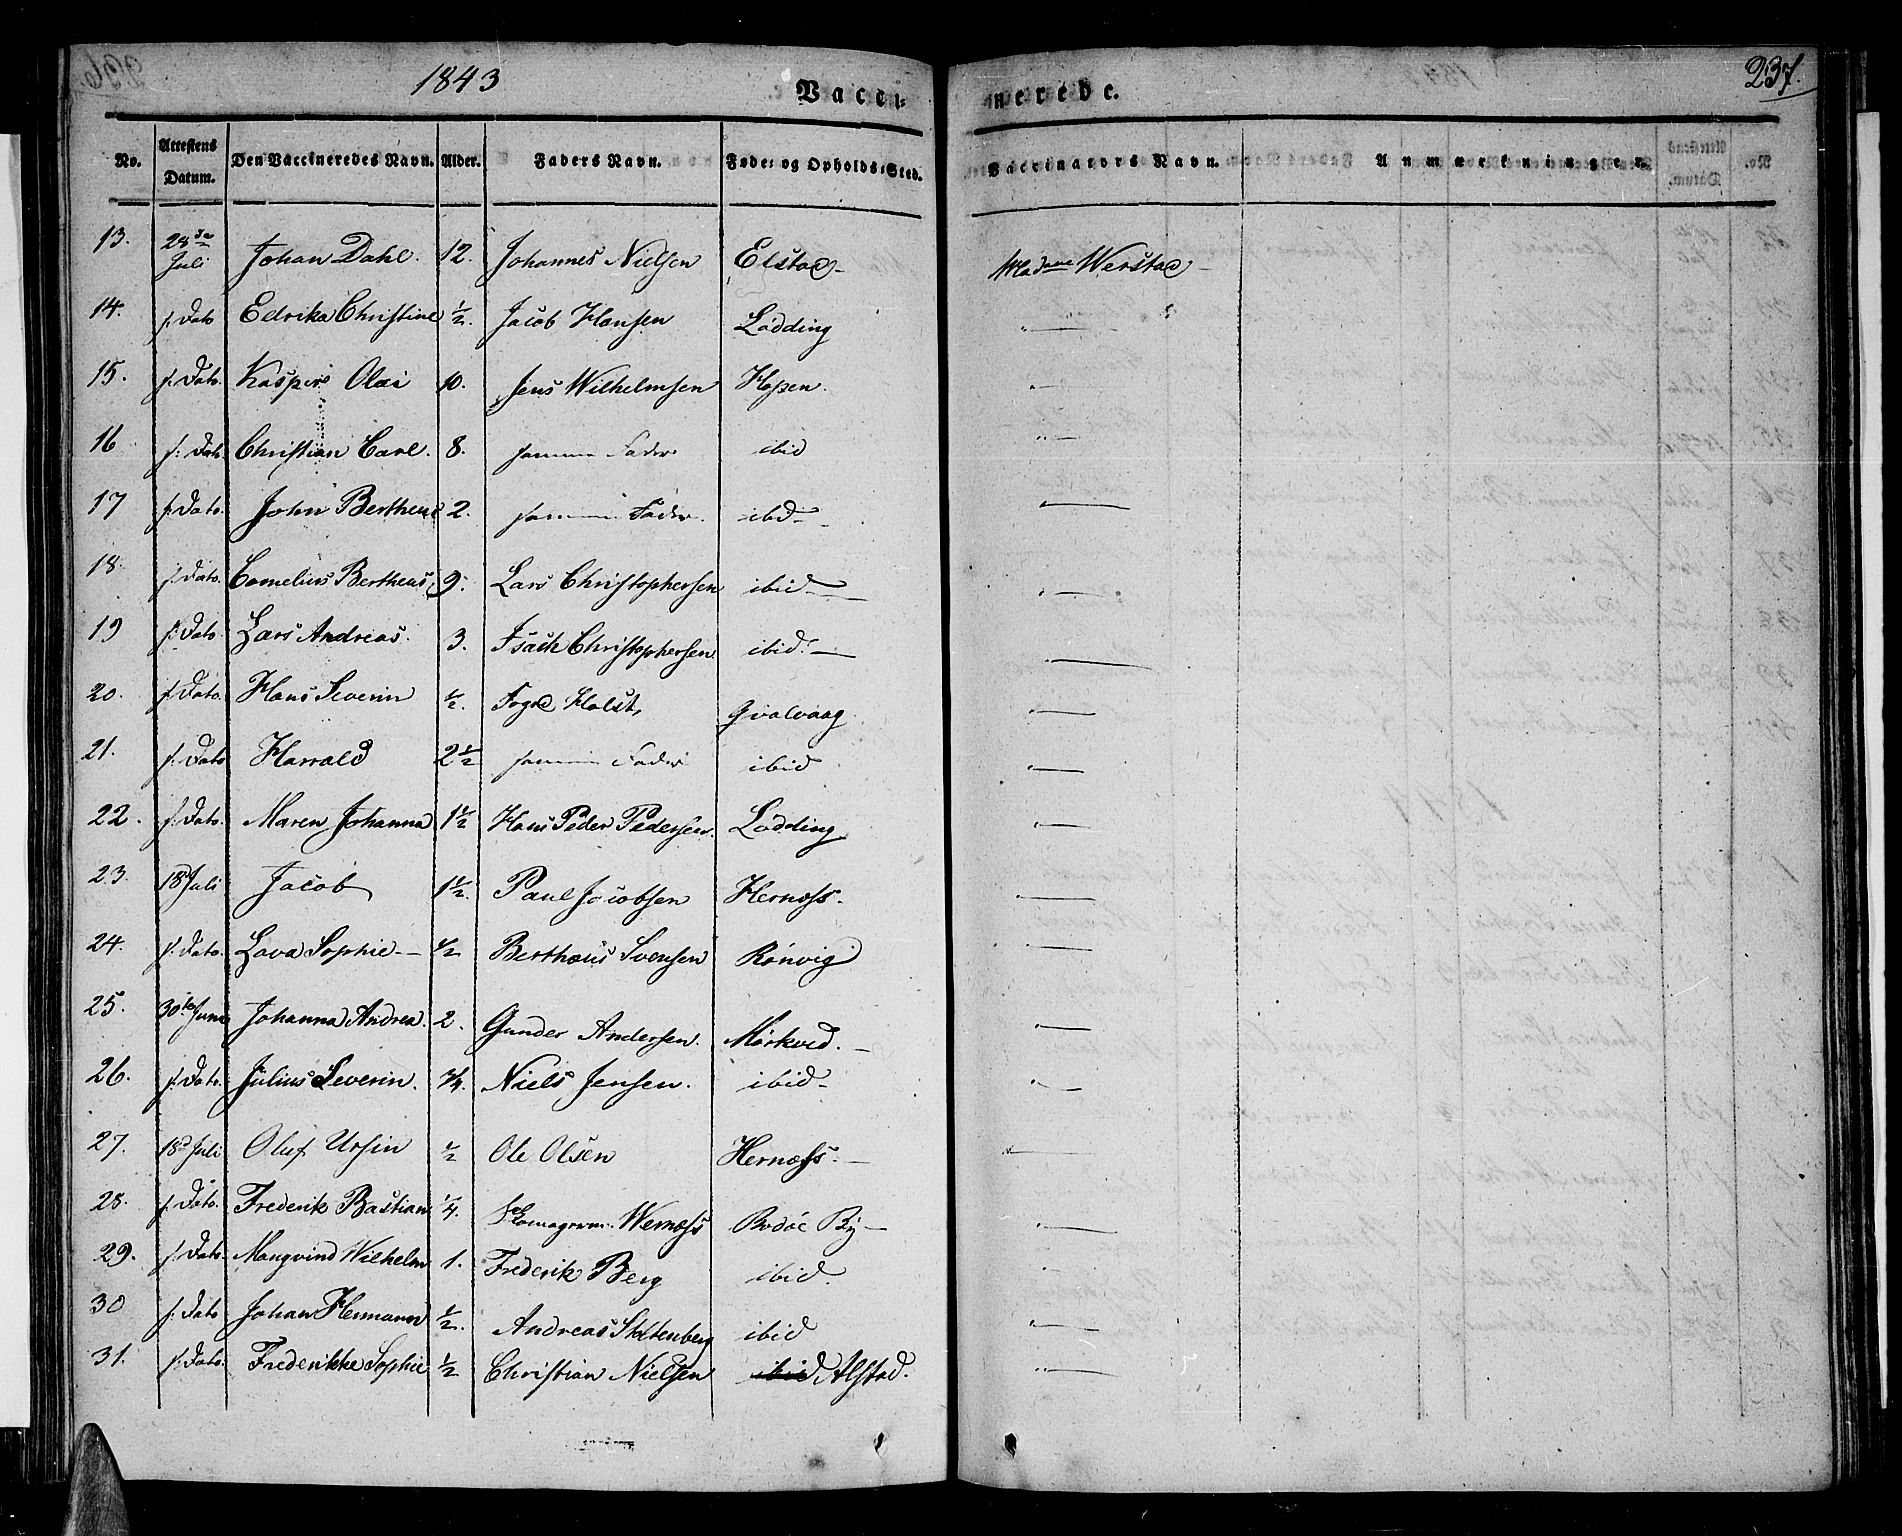 1843
Vacci-
nerede.
237.
No. Attestens Datum. Den Vaccineredes Navn. Alder. Faders Navn. Føde- og Opholds-Sted. Vaccinators Navn. Anmærkninger.
13. 28de Juli Johan Dahl. 12. Johannes Nielsen Elstad Madame Werstad
14. s: Dato Edrika Christine ½. Jacob Hansen Lødding "
15. s: Dato. Olai 10. Jens Wilhelmsen Hopen. "
16 s: Dato Christian Carl. 8. samme Fader ibid "
17 s: Dato. John Bertheus 2. samme Fader. ibd "
18. s: Dato. Cornelius Bertheus 9. Lars Christophersen ibid "
19 s: Dato. Lars Andreas. 3. Isach Christophersen ibid. "
20. s: Dato. Hans Severin ½. Foged Holst, Qvalvaag "
21. s: Dato Harrald 2½ samme Fader ibid "
22. s: Dato. Maren Johanna 1½ Hans Peder Pedersen. Lødding "
23. 18d Juli Jacob 1½. Paul Jacobsen Hernæss. "
24. s: Dato. Lava Sophie ½ Berthæus Svensen Rønvig "
25. 30te Juni Johanna Andrea. 2. Gunder Andersen. Mørkved. "
26. s: Dato. Julius Severin. Niels Jensen. ibid "
27. 18d Juli Oluf Ursin ½ Ole Olsen Hernæss. "
28. s: Dato. Frederik Bastian ¼. Wernæss Bodøe By "
29. s: Dato Wilhelm 1. Frederik Berg ibid "
30 s: Dato Johan Hermann ½. Andreas Stoltenberg ibid "
31. s: Dato. Frederikke Sophie ½ Christian Nielsen ibid Alstad. "